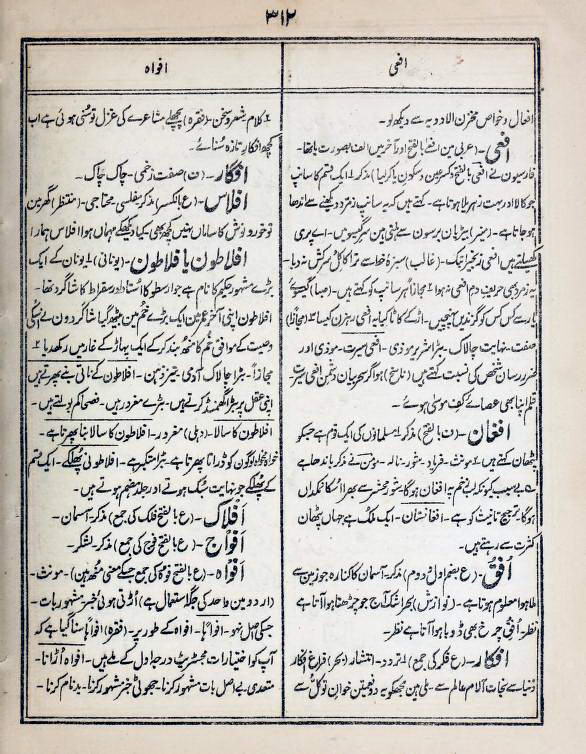 ۳۱۲
افعی
افواہ
افعال و خواص مخزن الادویہ سے دیکھ لو۔
افعی۔ (عربی میں افعے بالفتح اور آخر میں الف بصورت یا تھا۔
فارسیوں نے افعی بالفتح و کسر عین و سکون یا کر لیا) مذکر۔ ۱ ایک قسم کا سانپ
جو کالا اور بہت زہریلا ہوتا ہے۔ کہتے ہیں کہ یہ سانپ زمرد دیکھنے سے اندھا
ہو جاتا ہے۔ (منیر) بیڑیاں برسوں سے ہلتی ہیں سرگیسو میں۔ اے پری
کھیلتے ہیں افعی زنجیر تک۔ (غالب) سبزۂ خط سے ترا کاکل سرکش نہ دبا۔
یہ زمرد بھی حریف دم افعی نہ ہوا ۲ مجازاً ہر سانپ کو کہتے ہیں۔ (صبا) گیسوئے
یار سے کس کس کو گزندیں پہنچیں۔ اڑ کے کاٹا کیا یہ افعی رہزن کیسا ۳ (مجازاً)
صفت۔ نہایت چالاک۔ بڑا شریر موذی۔ افعی سیرت۔ موذی اور
ضرر رساں شخص کی نسبت کہتے ہیں (ناسخ) ہو اگر سحر بیاں دشمن افعی سیرت
قلم اپنا بھی عصائے کف موسیٰ ہوئے۔
افغان۔ (ن بالفتح) مذکر۔ ۱ مسلمانوں کی ایک قوم ہے جسکو
پٹھان کہتے ہیں ۲۔ مونث۔ فریاد۔ شور۔ نالہ۔ مومن نے مذکر باندھا ہے
بے سبب کیونکہ لب زخم پہ افغان ہوگا۔ شور محشر سے بھرا اسکا نمکداں
ہوگا۔ ترجیح تانیث کو ہے۔ افغانستان۔ ایک ملک ہے جہاں پٹھان
کثرت سے رہتے ہیں۔
اُفُق۔ (ع بضم اول و دوم) مذکر۔ آسمان کا کنارہ جو زمین سے
ملا ہوا معلوم ہوتا ہے۔ (نوازش) بحر اشک آج جو چڑھتا ہوا آتا ہے
نظر۔ اُفق چرخ بھی ڈوبا ہوا آتا ہے نظر۔
افکار۔ (ع فکر کی جمع) ۱۔ تردد۔ انتشار۔ (بحر) فراغ افکار
دنیا سے نجات آلام عالم سے۔ ملی ہیں مجھکو یہ دو نعمتیں خوان توکل سے
۲ کلام شعر و سخن۔ (فقرہ) پچھلے مشاعرے کی غزل تو سُنی ہوئی ہے اب
کچھ افکار تازہ سُنائیے۔
افگار۔ (ن) صفت زخمی۔ چاک چاک۔
افلاس۔ (ع بالکسر) مذکر۔ مفلسی۔ محتاجی۔ (منتظر) گھر میں
تو خور و نوش کا ساماں نہیں کچھ بھی۔ کیا دیکھ کے مہماں ہوا افلاس ہمارا
افلاطون یا فلاطون۔ (یونانی) ۱۔ یونان کے ایک
بڑے مشہور حکیم کا نام ہے جو ارسطو کا استاد اور سقراط کا شاگرد تھا۔
افلاطون اپنی آخر عمر میں ایک بڑے خم میں بیٹھ گیا شاگردوں نے اسکی
وصیت کے موافق خم کا منھ بند کر کے ایک پہاڑ کے غار میں رکھ دیا ۲
مجازاً۔ بڑا چالاک آدمی۔ تیز ذہن۔ افلاطون کے ناتی بنے پھرتے ہیں
اپنی عقل پر بڑا گھمنڈ کرتے ہیں۔ بڑے مغرور ہیں۔ فصحا کم بولتے ہیں۔
افلاطون کا سالا۔ (دہلی) مغرور۔ افلاطون کا سالا بنا پھرتا ہے۔
خواہ مخواہ لوگوں کو ڈراتا پھرتا ہے۔ بڑا متکبر ہے۔ افلاطونی پھلکے۔ ایک قسم
کے پھلکے جو نہایت سُبک ہوتے اور جلد ہضم ہوتے ہیں۔
اَفلاک۔ (ع بالفتح فلک کی جمع) مذکر۔ آسمان۔
اَفواج۔ (ع بالفتح فوج کی جمع) مذکر۔ لشکر۔
اَفواہ۔ (ع بالفتح فوہ کی جمع جسکے معنی منھ ہیں)۔ مونث۔
(اردو میں واحد کی جگہ استعمال ہے) اُڑتی ہوئی خبر۔ مشہور بات۔
جسکی اصل نہو۔ افواہاً۔ افواہ کے طور پر۔ (فقرہ) افواہاً سنا گیا ہے کہ
آپ کو اختیارات مجسٹریٹ درجۂ اول کے ملے ہیں۔ افواہ اُڑانا۔
متعدی۔ بے اصل بات مشہور کرنا۔ جھوٹی خبر مشہور کرنا۔ بدنام کرنا۔